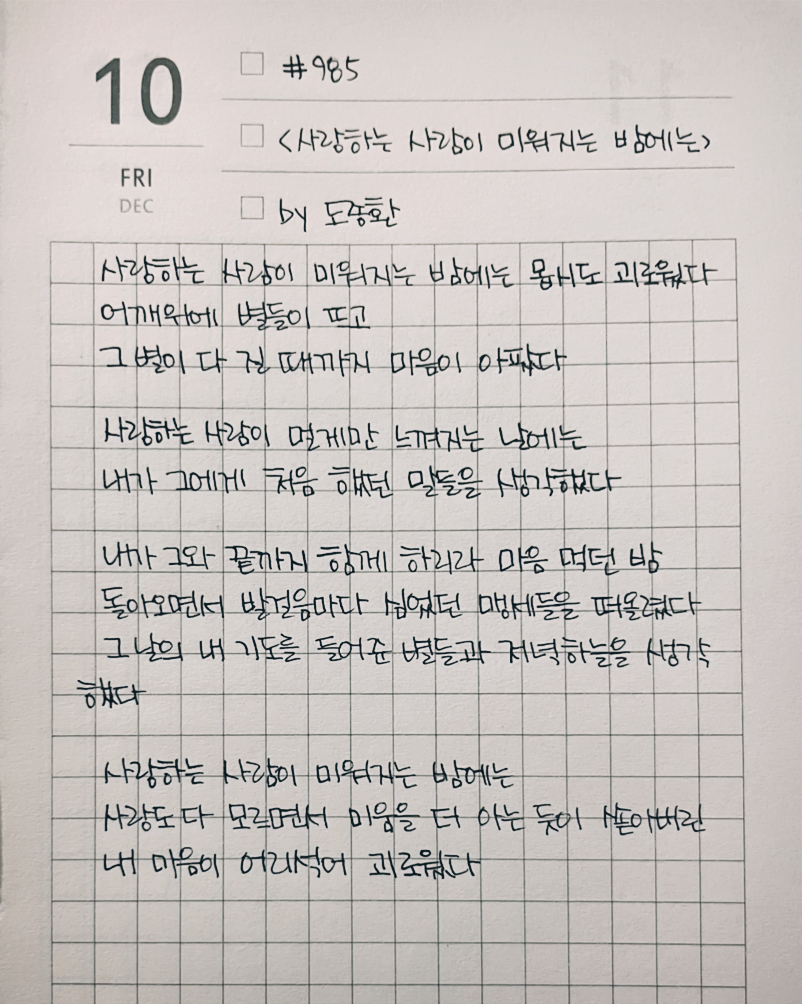 10
FRI
DEC
#985
<사랑하는 사람이 미워지는 밤에는>
by 도종환
사랑하는 사람이 미워지는 밤에는 몹시도 괴로웠다
어깨위에 별들이 뜨고
그 별이 다 질 때까지 마음이 아팠다
사랑하는 사람이 멀게만 느껴지는 날에는
내가 그에게 처음 했던 말들을 생각했다
내가 그와 끝까지 함께 하리라 마음 먹던 밤
돌아오면서 발걸음마다 심었던 맹세들을 떠올렸다
그날의 내 기도를 들어준 별들과 저녁하늘을 생각
했다
사랑하는 사람이 미워지는 밤에는
사랑도 다 모르면서 미움을 더 아는 듯이 쏟아버린
내 마음이 어리석어 괴로웠다